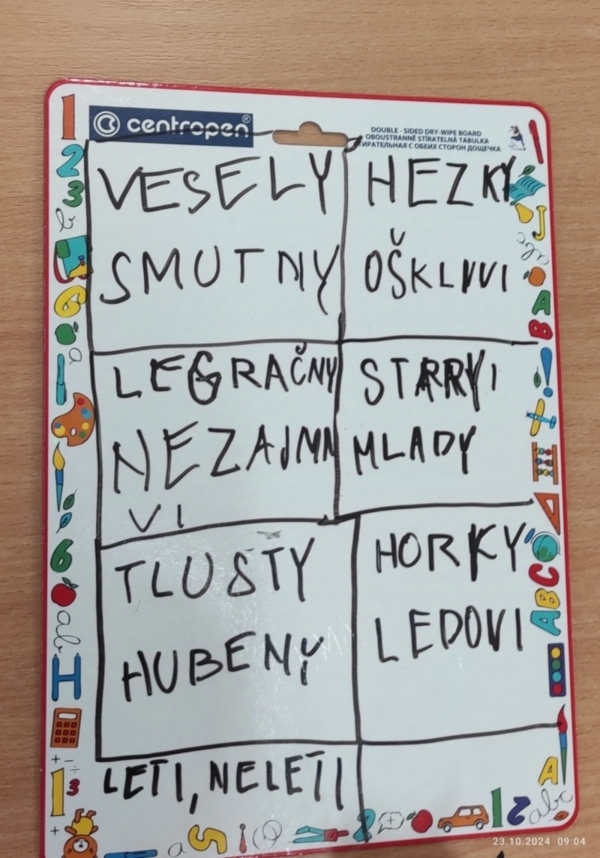 centropen®
DOUBLE - SIDED DRY-WIPE BOARD
OBOUSTRANNĚ STÍRATELNÁ TABULKA
СТИРАТЕЛЬНАЯ С ОБЕИХ СТОРОН ДОЩЕЧКА
VESELY
SMUTNY
HEZKY
OŠKLIVI
LEGRAČNY
NEZAJMA
VI
STARYI
MLADY
TLUSTY
HUBENY
HORKY
LEDOVI
LETI, NELETI
23.10.2024 09:04